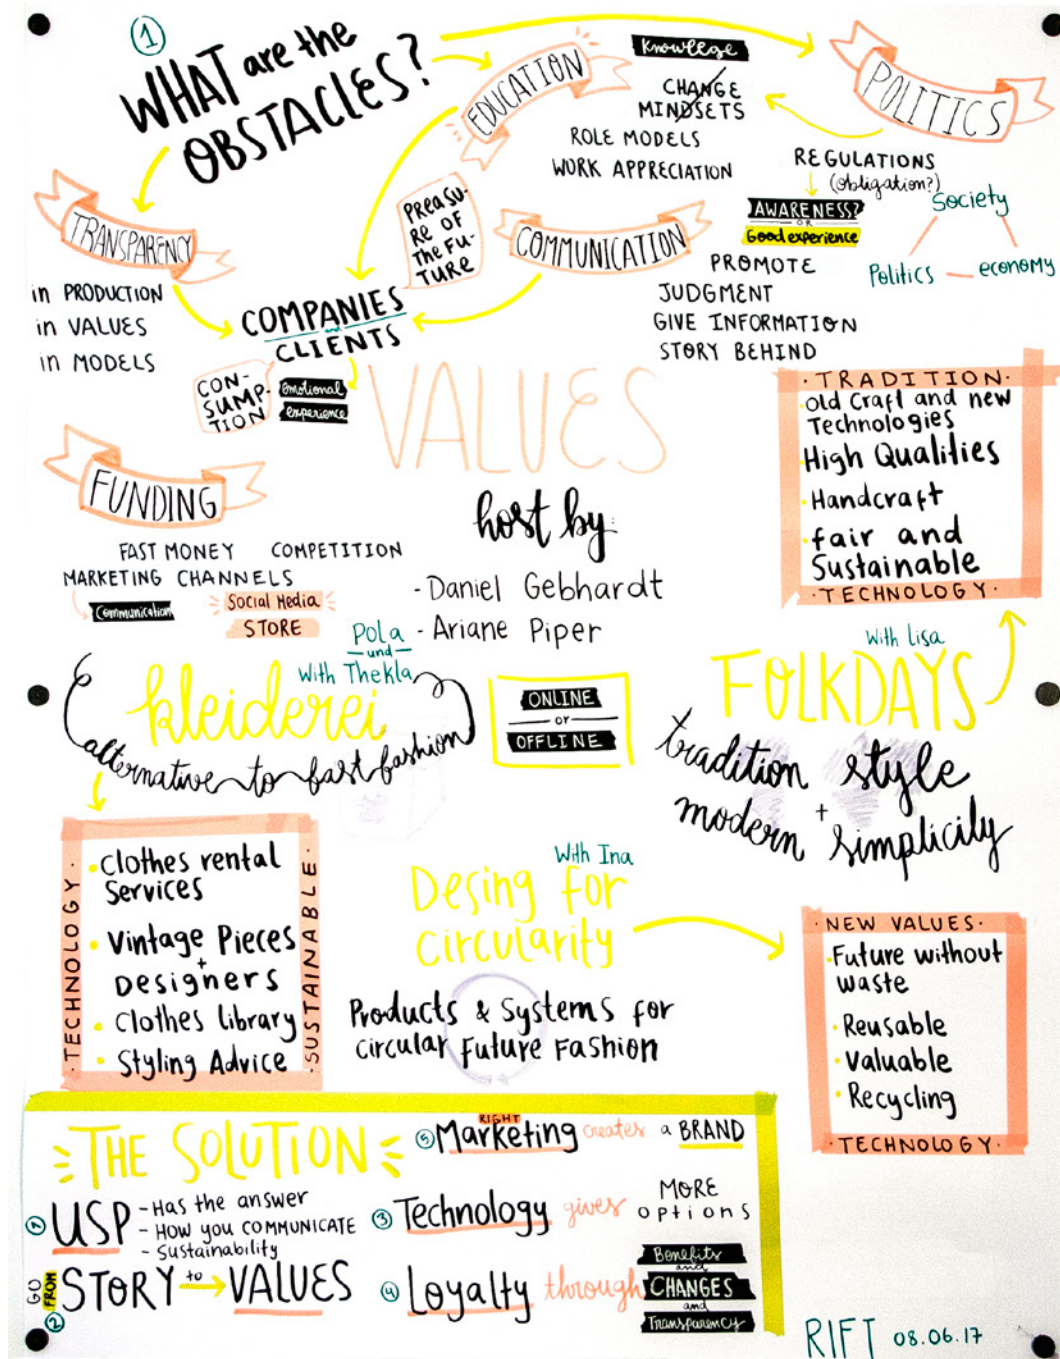 1
WHAT are the
OBSTACLES?
EDUCATION
Knowlege
CHANGE
MINDSETS
ROLE MODELS
WORK APPRECIATION
POLITICS
REGULATIONS
(obligation?)
AWARENESS?
OR
Good experience
Society
Politics
economy
TRANSPARENCY
in PRODUCTION
in VALUES
in MODELS
PREASU-
RE OF
THE FU-
TURE
COMMUNICATION
PROMOTE
JUDGMENT
GIVE INFORMATION
STORY BEHIND
COMPANIES
and
CLIENTS
CON-
SUMP-
TION
emotional
experience
VALUES
host by:
- Daniel Gebhardt
- Ariane Piper
FUNDING
FAST MONEY COMPETITION
MARKETING CHANNELS
Communication
Social Media
STORE
· TRADITION ·
Old Craft and new
Technologies
High Qualities
Handcraft
fair and
Sustainable
· TECHNOLOGY ·
Pola
und
With Thekla
kleiderei
alternative to fast fashion
ONLINE
or
OFFLINE
With Lisa
FOLKDAYS
tradition style
+
modern simplicity
· TECHNOLOGY ·
Clothes rental
Services
Vintage Pieces
+
Designers
Clothes library
Styling Advice
· SUSTAINABLE ·
With Ina
Desing for
circularity
Products & Systems for
circular future Fashion
· NEW VALUES ·
Future without
waste
Reusable
Valuable
Recycling
· TECHNOLOGY ·
THE SOLUTION
1 USP
- Has the answer
- How you COMMUNICATE
- Sustainability
2 GO FROM STORY to VALUES
3 Technology gives MORE
options
4 Loyalty through Benefits
and
CHANGES
and
Transparency
5 RIGHT
Marketing creates a BRAND
RIFT 08.06.17